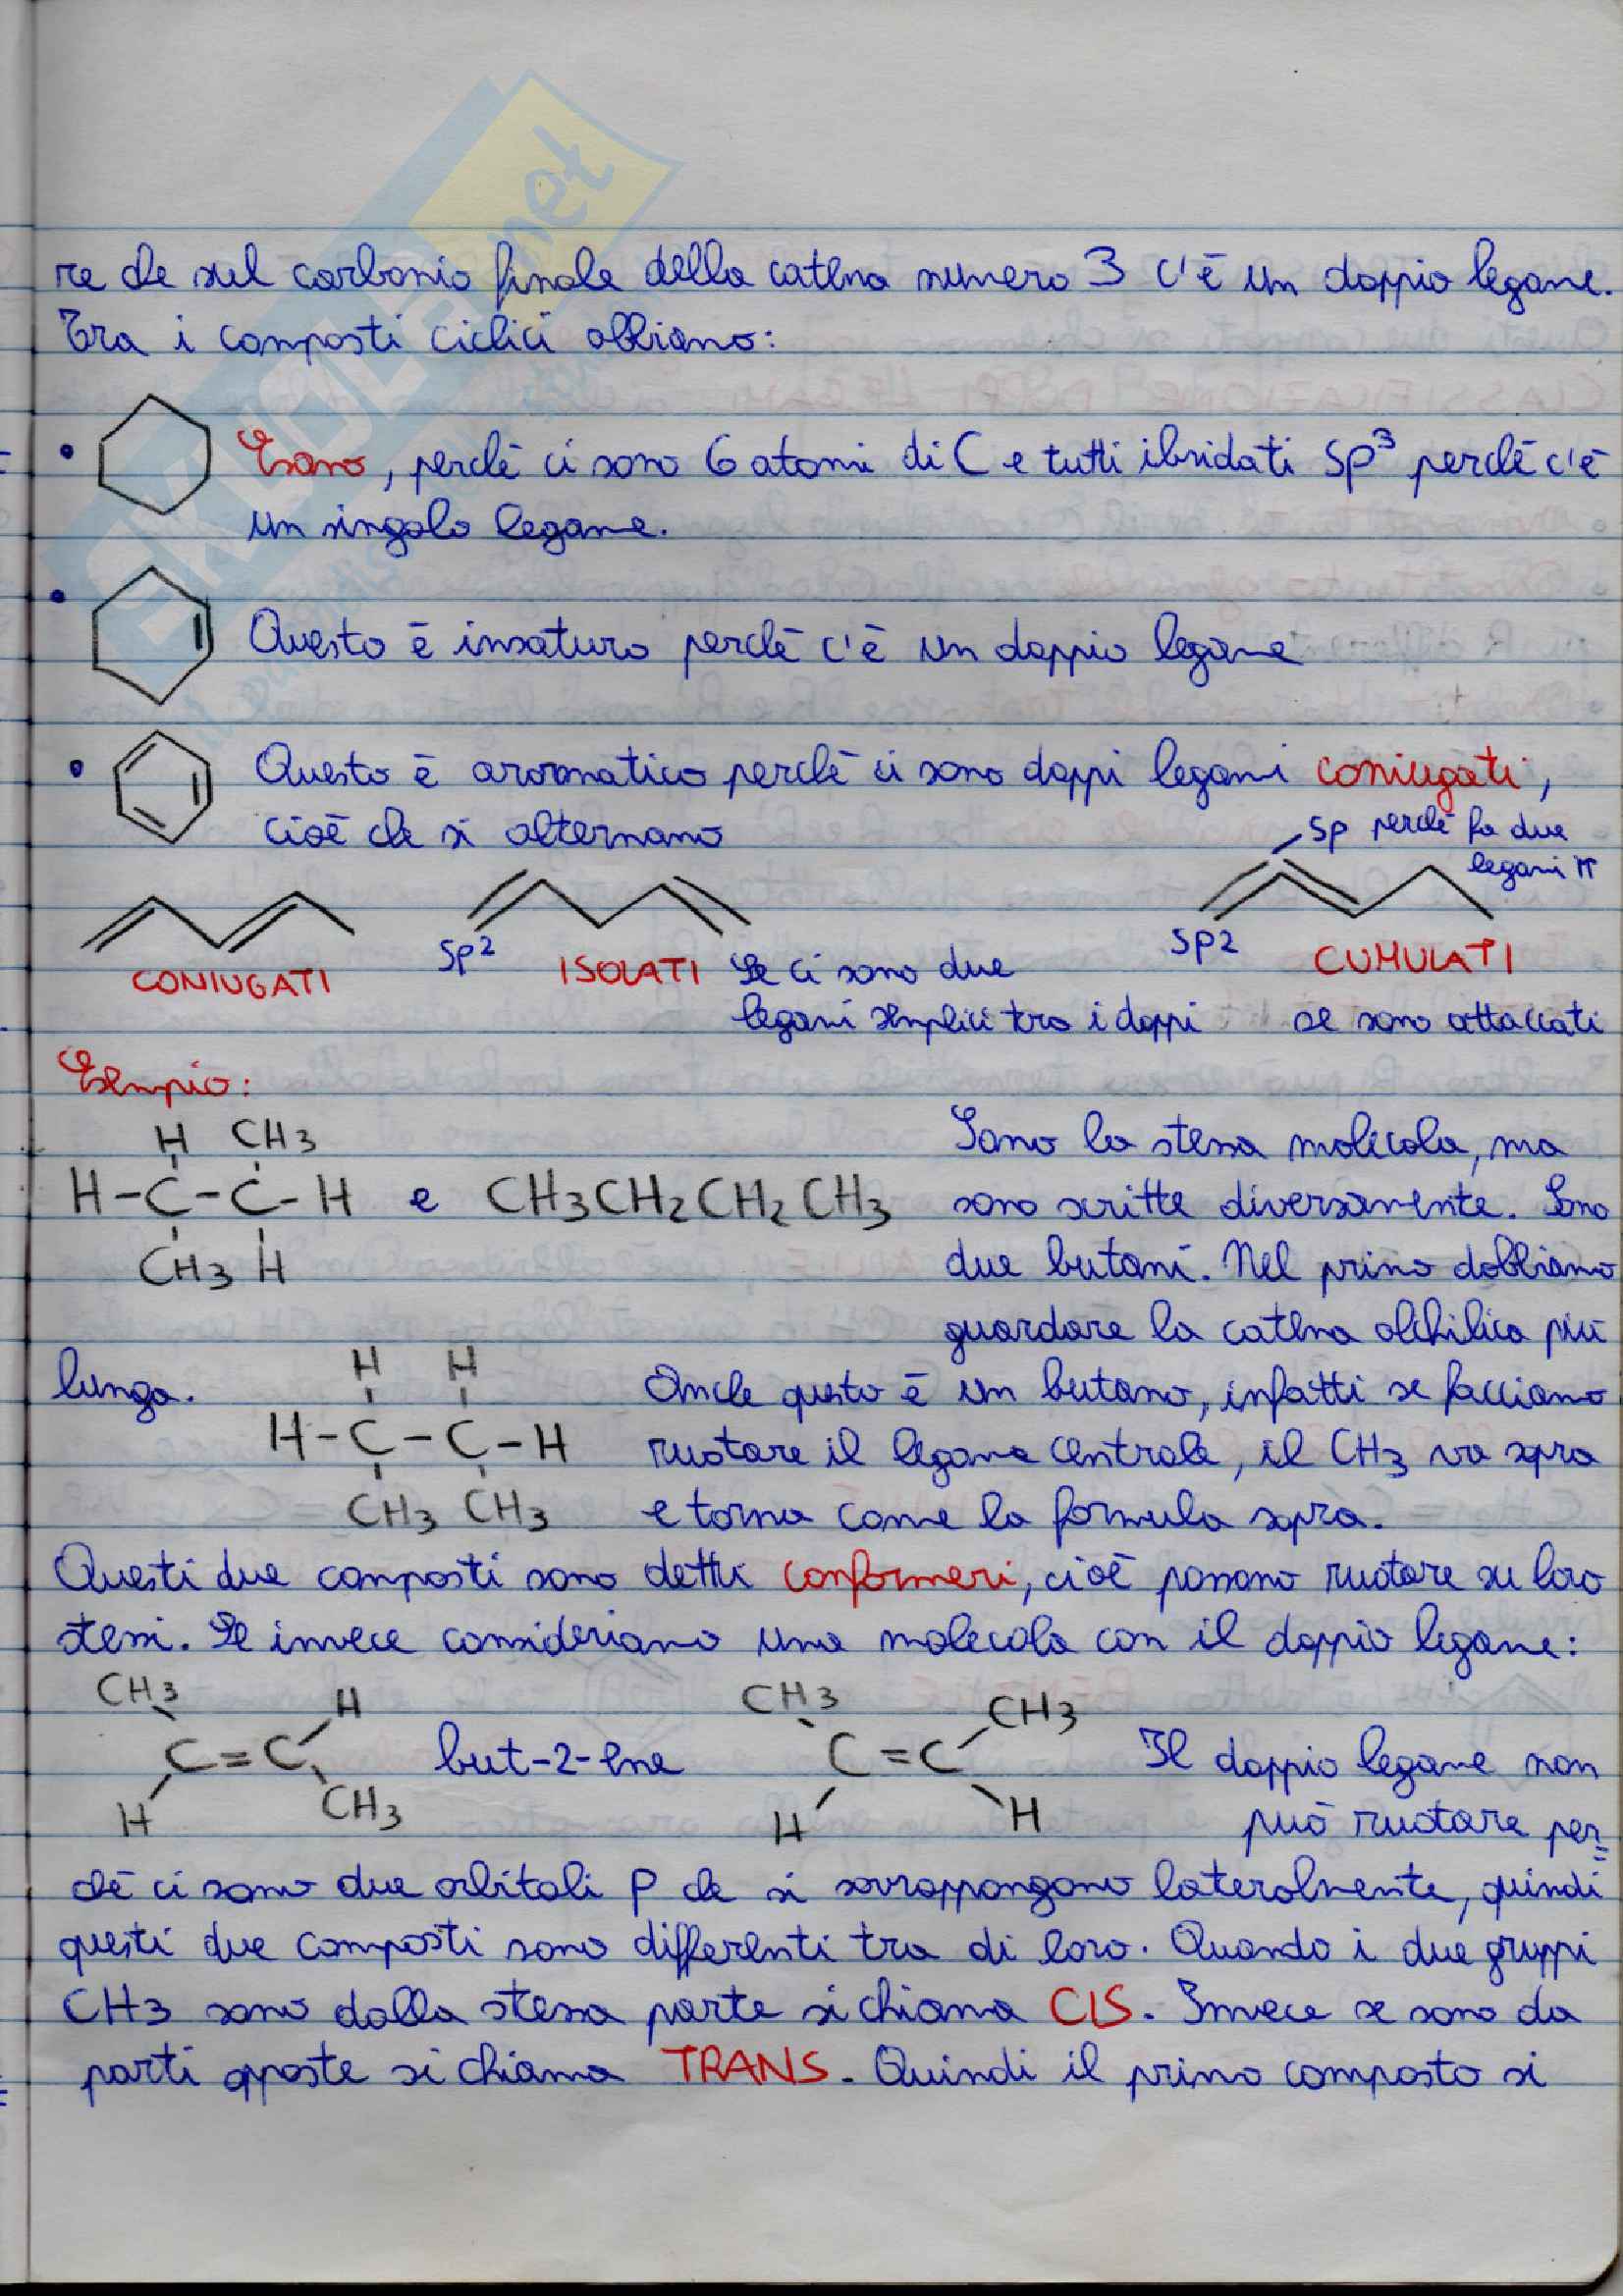 re che sul carbonio finale della catena numero 3 c'è un doppio legame.
Tra i composti ciclici abbiamo:
• Esano, perché ci sono 6 atomi di C e tutti ibridati sp³ perché c'è
un singolo legame.
• Questo è insaturo perché c'è un doppio legame
• Questo è aromatico perché ci sono doppi legami coniugati,
cioè che si alternano
sp perché fa due
legami π
CONIUGATI
sp²
ISOLATI
Se ci sono due
legami semplici tra i doppi
sp2
CUMULATI
se sono attaccati
Esempio:
H CH3
H-C-C-H e CH3CH2CH2CH3
CH3 H
Sono la stessa molecola, ma
sono scritte diversamente. Sono
due butani. Nel primo dobbiamo
guardare la catena alchilica più
lunga.
H H
H-C-C-H
CH3 CH3
Anche questo è un butano, infatti se facciamo
ruotare il legame centrale, il CH3 va sopra
e torna come la formula sopra.
Questi due composti sono detti conformeri, cioè possono ruotare su loro
stessi. Se invece consideriamo una molecola con il doppio legame:
CH3 H
C=C but-2-ene
H CH3
CH3 CH3
C=C
H H
Il doppio legame non
può ruotare per=
ché ci sono due orbitali p che si sovrappongono lateralmente, quindi
questi due composti sono differenti tra di loro. Quando i due gruppi
CH3 sono dalla stessa parte si chiama CIS. Invece se sono da
parti opposte si chiama TRANS. Quindi il primo composto si
SKUOLA.net